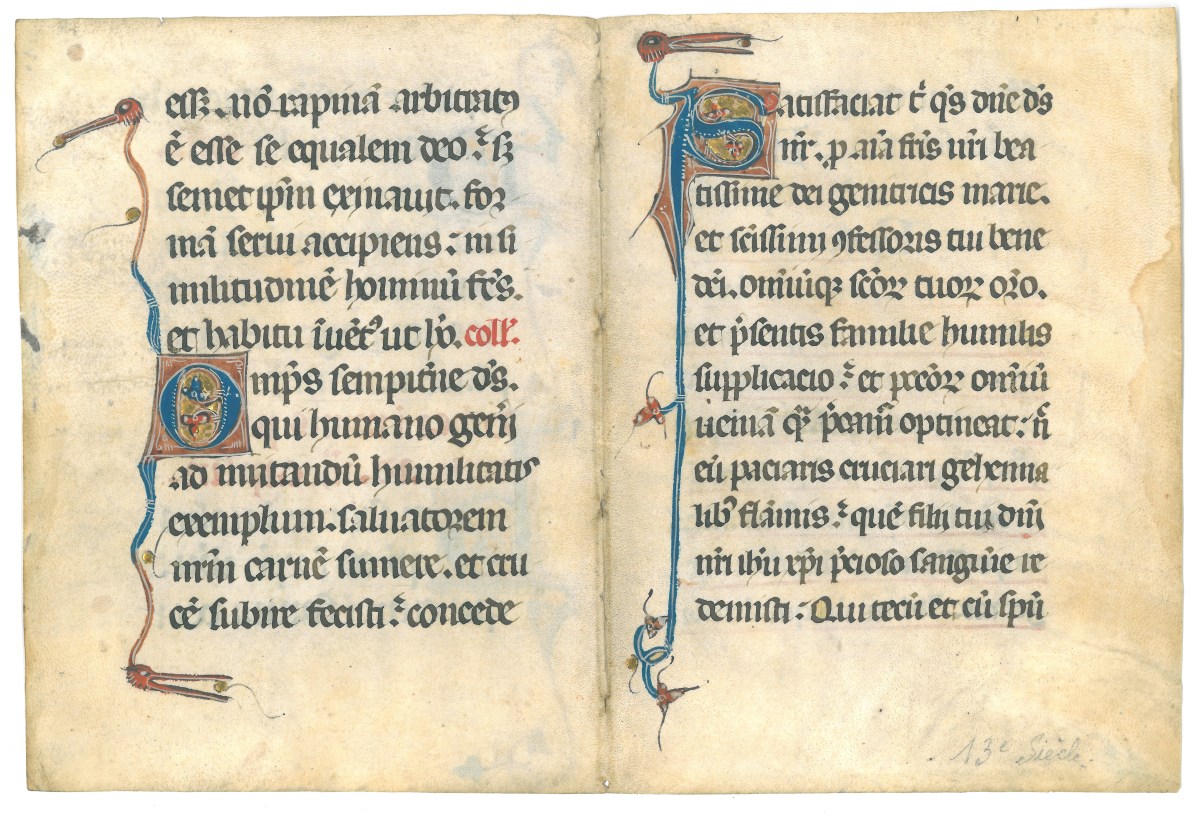 esset. nō rapinā arbitratꝰ
ē esse se equalem deo ⁊ sꝫ
semet ip̄m exinaiuit. foꝛ
mā serui accipiens : in si
militudinē hominū fc̄s.
et habitu īuētꝰ ut hō. coll'.
Omp̄s sempit̄ne ds̄.
qui humano gen̄i
ad imitandū humilitatis
exemplum. saluatoꝛem
nr̄m carnē sumere. et cru
cē subire fecisti ⁊ concede
Satisfaciat t̄ qs̄ dn̄e ds̄
nr̄. ꝓ aīa fr̄is nr̄i bea
tissime dei genitricis marie.
et sc̄issimi ꝯfessoris tui bene
dc̄i. omīuiqꝫ sc̄oꝝ tuoꝝ oꝛo.
et p̄sentis familie humilis
supplicacio ⁊ et pc̄oꝝ omniū
ueniā qm̄ p̄camr̄ optineat : n̄
eū paciaris cruciari gehenna
libꝰ flāmis. ⁊ quē filij tui dn̄i
nr̄i ih̄u xp̄i p̄cioso sanguīe re
demisti : Qui tecū et cū spū
13e Siècle.